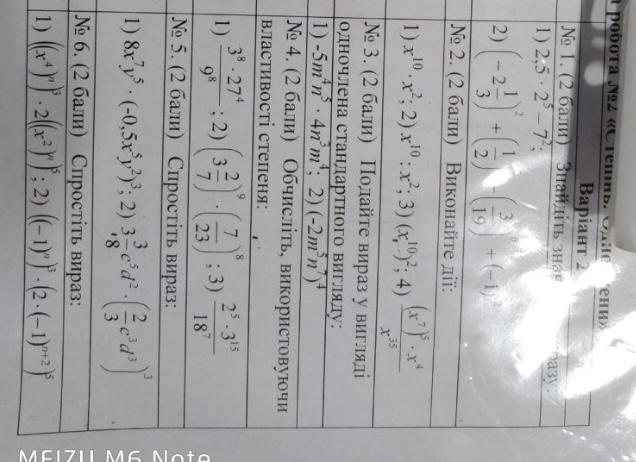 робота №2 «Степінь. Одночлени»
Варіант 2
№ 1. (2 бали) Знайдіть
1) 2,5 · 2⁵ − 7²;
2) (−2 1/3)² + (1/2) − (3/19)⁰ + (−1)
№ 2. (2 бали) Виконайте дії:
1) x¹⁰ · x²; 2) x¹⁰ : x²; 3) (x¹⁰)²; 4) (x⁷)⁵ · x⁴ / x³⁵
№ 3. (2 бали) Подайте вираз у вигляді
одночлена стандартного вигляду:
1) -5m⁴n⁵ · 4n³m⁴; 2) (-2m⁵n⁷)⁴
№ 4. (2 бали) Обчисліть, використовуючи
властивості степеня:
1) 3⁸·27⁴ / 9⁸; 2) (3 2/7)⁹ · (7/23)⁸; 3) 2⁵·3¹⁵ / 18⁷
№ 5. (2 бали) Спростіть вираз:
1) 8x⁷y⁵ · (-0,5x⁵y²)³; 2) 3 3/8 c⁵d² · (2/3 c³d³)³
№ 6. (2 бали) Спростіть вираз:
1) ((x⁴)ⁿ)³ · 2((x²)ⁿ)⁵; 2) ((−1)ⁿ)³ · (2·(−1)ⁿ⁺²)⁵
MEIZU M6 Note